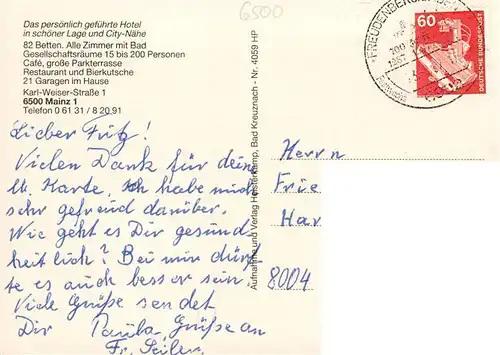 6500
Das persönlich geführte Hotel
in schöner Lage und City-Nähe
82 Betten. Alle Zimmer mit Bad
Gesellschaftsräume 15 bis 200 Personen
Café, große Parkterrasse
Restaurant und Bierkutsche
21 Garagen im Hause
Karl-Weiser-Straße 1
6500 Mainz 1
Telefon 0 61 31 / 8 20 91
Lieber Fritz!
Vielen Dank für deine
lb. Karte, ich habe mich
sehr gefreud darüber.
Wie geht es Dir gesund-
heitlich? Bei mir dürf-
te es auch besser sein.
Viele Grüße sendet
Dir Paula. Grüße an
Fr. Seiler.
Aufnahme und Verlag Heisterkamp, Bad Kreuznach - Nr. 4059 HP
FREUDENBERG
60
DEUTSCHE BUNDESPOST
Herrn
Frie
Har
8004